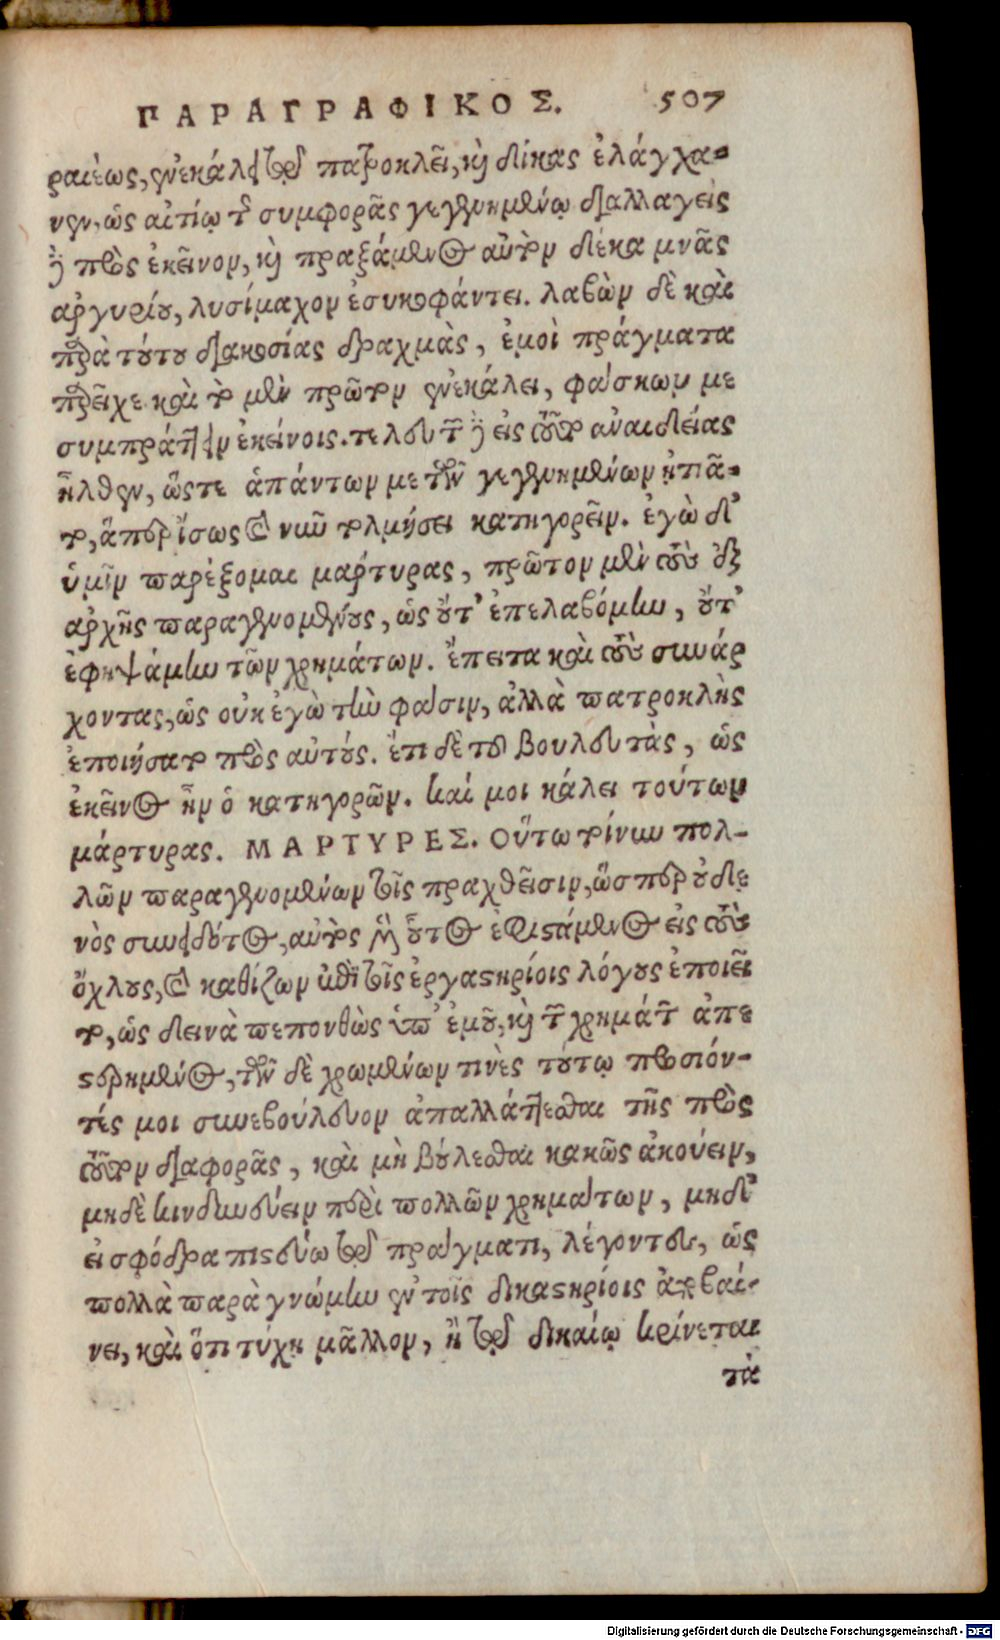 ΠΑΡΑΓΡΑΦΙΚΟΣ. 507
ραιέως, ἐνεκάλει τῷ πατροκλεῖ, καὶ δίκας ἐλάγχα-
νεν, ὡς αἰτίῳ τῆς συμφορᾶς γεγενημένῳ διαλλαγεὶς
δὲ πρὸς ἐκεῖνον, καὶ πραξάμενος αὐτὸν δέκα μνᾶς
ἀργυρίου, λυσίμαχον ἐσυκοφάντει. λαβὼν δὲ καὶ
παρὰ τούτου διακοσίας δραχμὰς, ἐμοὶ πράγματα
παρεῖχε καὶ τὸ μὲν πρῶτον ἐνεκάλει, φάσκων με
συμπράττειν ἐκείνοις. τελευτῶν δὲ εἰς τοῦτο ἀναιδείας
ἦλθεν, ὥστε ἁπάντων με τῶν γεγενημένων ᾐτιᾶ-
το, ἅπερ ἴσως καὶ νῦν τολμήσει κατηγορεῖν. ἐγὼ δ'
ὑμῖν παρέξομαι μάρτυρας, πρῶτον μὲν τοὺς ἐξ
ἀρχῆς παραγενομένους, ὡς οὔτ' ἐπελαβόμην, οὔτ'
ἐφηψάμην τῶν χρημάτων. ἔπειτα καὶ τοὺς συνάρ
χοντας, ὡς οὐκ ἐγὼ τὴν φάσιν, ἀλλὰ πατροκλῆς
ἐποιήσατο πρὸς αὐτούς. ἔτι δὲ τοὺς βουλευτὰς, ὡς
ἐκεῖνος ἦν ὁ κατηγορῶν. καί μοι κάλει τούτων
μάρτυρας. ΜΑΡΤΥΡΕΣ. Οὕτω τοίνυν πολ-
λῶν παραγενομένων τοῖς πραχθεῖσιν, ὥσπερ οὐδε
νὸς συνειδότος, αὐτὸς μὲν οὗτος ἐφιστάμενος εἰς τοὺς
ὄχλους, καὶ καθίζων ἐπὶ τοῖς ἐργαστηρίοις λόγους ἐποιεῖ
το, ὡς δεινὰ πεπονθὼς ὑπ' ἐμοῦ, καὶ τῶν χρημάτων ἀπε
στερημένος, τῶν δὲ χρωμένων τινὲς τούτῳ προσιόν-
τές μοι συνεβούλευον ἀπαλλάττεσθαι τῆς πρὸς
τοῦτον διαφορᾶς, καὶ μὴ βούλεσθαι κακῶς ἀκούειν,
μηδὲ κινδυνεύειν περὶ πολλῶν χρημάτων, μηδ'
εἰ σφόδρα πιστεύω τῷ πράγματι, λέγοντες, ὡς
πολλὰ παρὰ γνώμην ἐν τοῖς δικαστηρίοις ἀποβαί-
νει, καὶ ὅτι τύχῃ μᾶλλον, ἢ τῷ δικαίῳ κρίνεται
τὰ
Digitalisierung gefördert durch die Deutsche Forschungsgemeinschaft - DFG